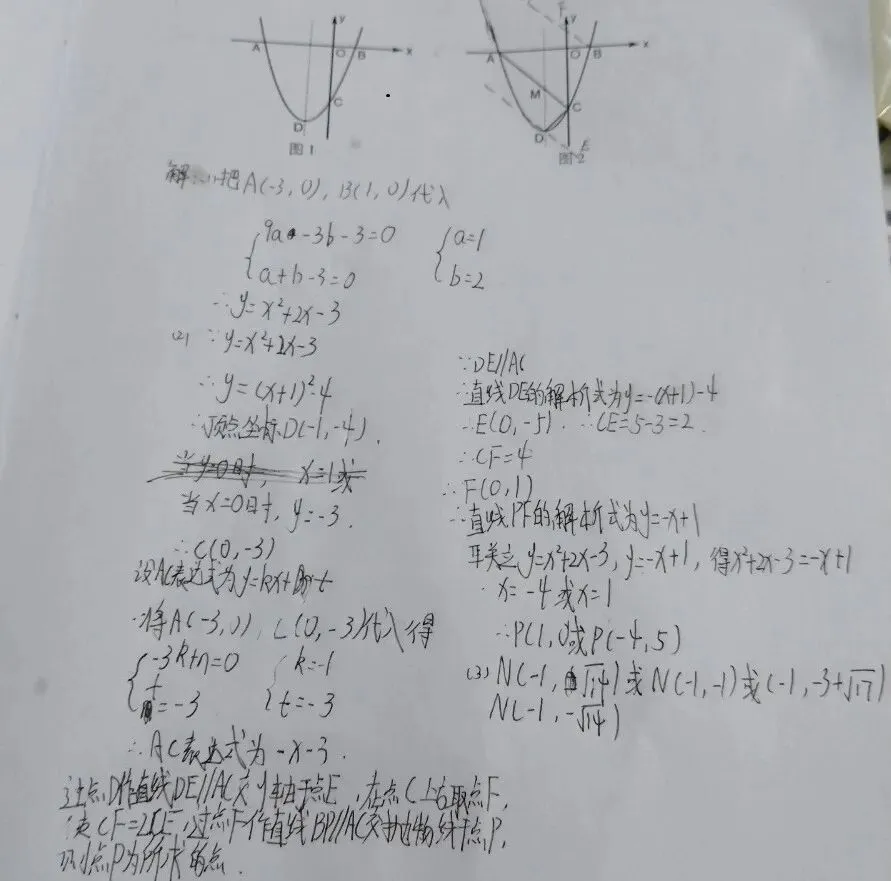 y
A
O
B
x
C
D
图1
F
y
A
O
B
x
M
C
D
E
图2
解:(1)把A(-3,0),B(1,0)代入
{9a-3b-3=0 {a=1
a+b-3=0 b=2
∴y=x²+2x-3
(2) ∵y=x²+2x-3
∴y=(x+1)²-4
∴顶点坐标D(-1,-4).
当y=0时, x=1或
当x=0时,y=-3.
∴C(0,-3)
设AC表达式为y=kx+t
将A(-3,0),C(0,-3)代入得
{-3k+n=0 {k=-1
t=-3 t=-3
∴AC表达式为-x-3.
过点D作直线DE//AC交y轴于点E,在点C上方取点F,
使CF=2CE,过点F作直线BP//AC交抛物线于点P,
则点P为所求的点.
∵DE//AC
∴直线DE的解析式为y=-(x+1)-4
∴E(0,-5).∴CE=5-3=2.
∴CF=4
∴F(0,1)
∴直线PF的解析式为y=-x+1
联立y=x²+2x-3,y=-x+1,得x²+2x-3=-x+1
x=-4或x=1
∴P(1,0)或P(-4,5)
(3) N(-1,√14)或N(-1,-1)或(-1,-3+√17)
N(-1,-√14)